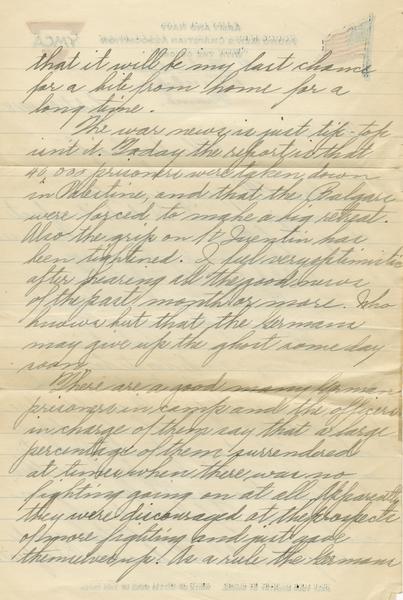 that it will be my last chance
for a bite from home for a
long time.
The war news is just tip-top
isn't it. Today the report is that
40,000 prisoners were taken, down
in Palestine, and that the Bulgars
were forced to make a big retreat.
Also the grip on St Quentin has
been tightened. I feel very optimistic
after hearing all the good news
of the past month or more. Who
knows but that the Germans
may give up the ghost some day
soon.
There are a good many German
prisoners in camp and the officers
in charge of them say that a large
percentage of them surrendered
at times when there was no
fighting going on at all. Apparently
they were discouraged at the prospects
of more fighting and just gave
themselves up. As a rule the Germans